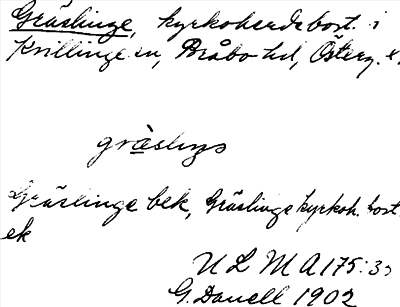 Gräslinge, kyrkoherdebost. i
Kvillinge sn, Bråbo hd, Österg. l.
gräslıŋs
Gräslinge bek, Gräslinge kyrkoh. bost.
ek
ULMA 175:35
G. Danell 1902